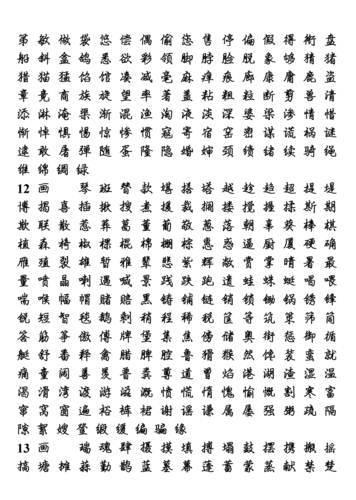 第 敏 做 袋 悠 偿 偶 偷 您 售 停 偏 假 得 衔 盘
船 斜 盒 鸽 悉 欲 彩 领 脚 脖 脸 脱 象 够 猜 猪
猎 猫 猛 馅 馆 凑 减 毫 麻 痒 痕 廊 康 庸 鹿 盗
章 竟 商 族 旋 望 率 着 盖 粘 粗 粒 断 剪 兽 清
添 淋 淹 渠 渐 混 渔 淘 液 淡 深 婆 梁 渗 情 惜
惭 悼 惧 惕 惊 惨 惯 寇 寄 宿 窑 密 谋 谎 祸 谜
逮 敢 屠 弹 随 蛋 隆 隐 婚 婶 颈 绩 绪 续 骑 绳
维 绵 绸 绿
12 画 琴 斑 替 款 堪 搭 塔 越 趁 趋 超 提 堤
博 揭 喜 插 揪 搜 煮 援 裁 搁 搂 搅 握 揉 斯 期
欺 联 散 惹 葬 葛 董 葡 敬 葱 落 朝 辜 葵 棒 棋
植 森 椅 椒 棵 棍 棉 棚 棕 惠 惑 逼 厨 厦 硬 确
雁 殖 裂 雄 暂 雅 辈 悲 紫 辉 敞 赏 掌 晴 暑 最
量 喷 晶 喇 遇 喊 景 践 跌 跑 遗 蛙 蛛 蜓 喝 喂
喘 喉 幅 帽 赌 赔 黑 铸 铺 链 销 锁 锄 锅 锈 锋
锐 短 智 毯 鹅 剩 稍 程 稀 税 筐 等 筑 策 筛 筒
答 筋 筝 傲 傅 牌 堡 集 焦 傍 储 奥 街 惩 御 循
艇 舒 番 释 禽 腊 脾 腔 鲁 猾 猴 然 馋 装 蛮 就
痛 童 阔 善 羡 普 粪 尊 道 曾 焰 港 湖 渣 湿 温
渴 滑 湾 渡 游 滋 溉 愤 慌 惰 愧 愉 慨 割 寒 富
窜 窝 窗 遍 裕 裤 裙 谢 谣 谦 属 屡 强 粥 疏 隔
隙 絮 嫂 登 缎 缓 编 骗 缘
13 画 瑞 魂 肆 摄 摸 填 搏 塌 鼓 摆 携 搬 摇
搞 塘 摊 蒜 勤 鹊 蓝 墓 幕 蓬 蓄 蒙 蒸 献 禁 楚